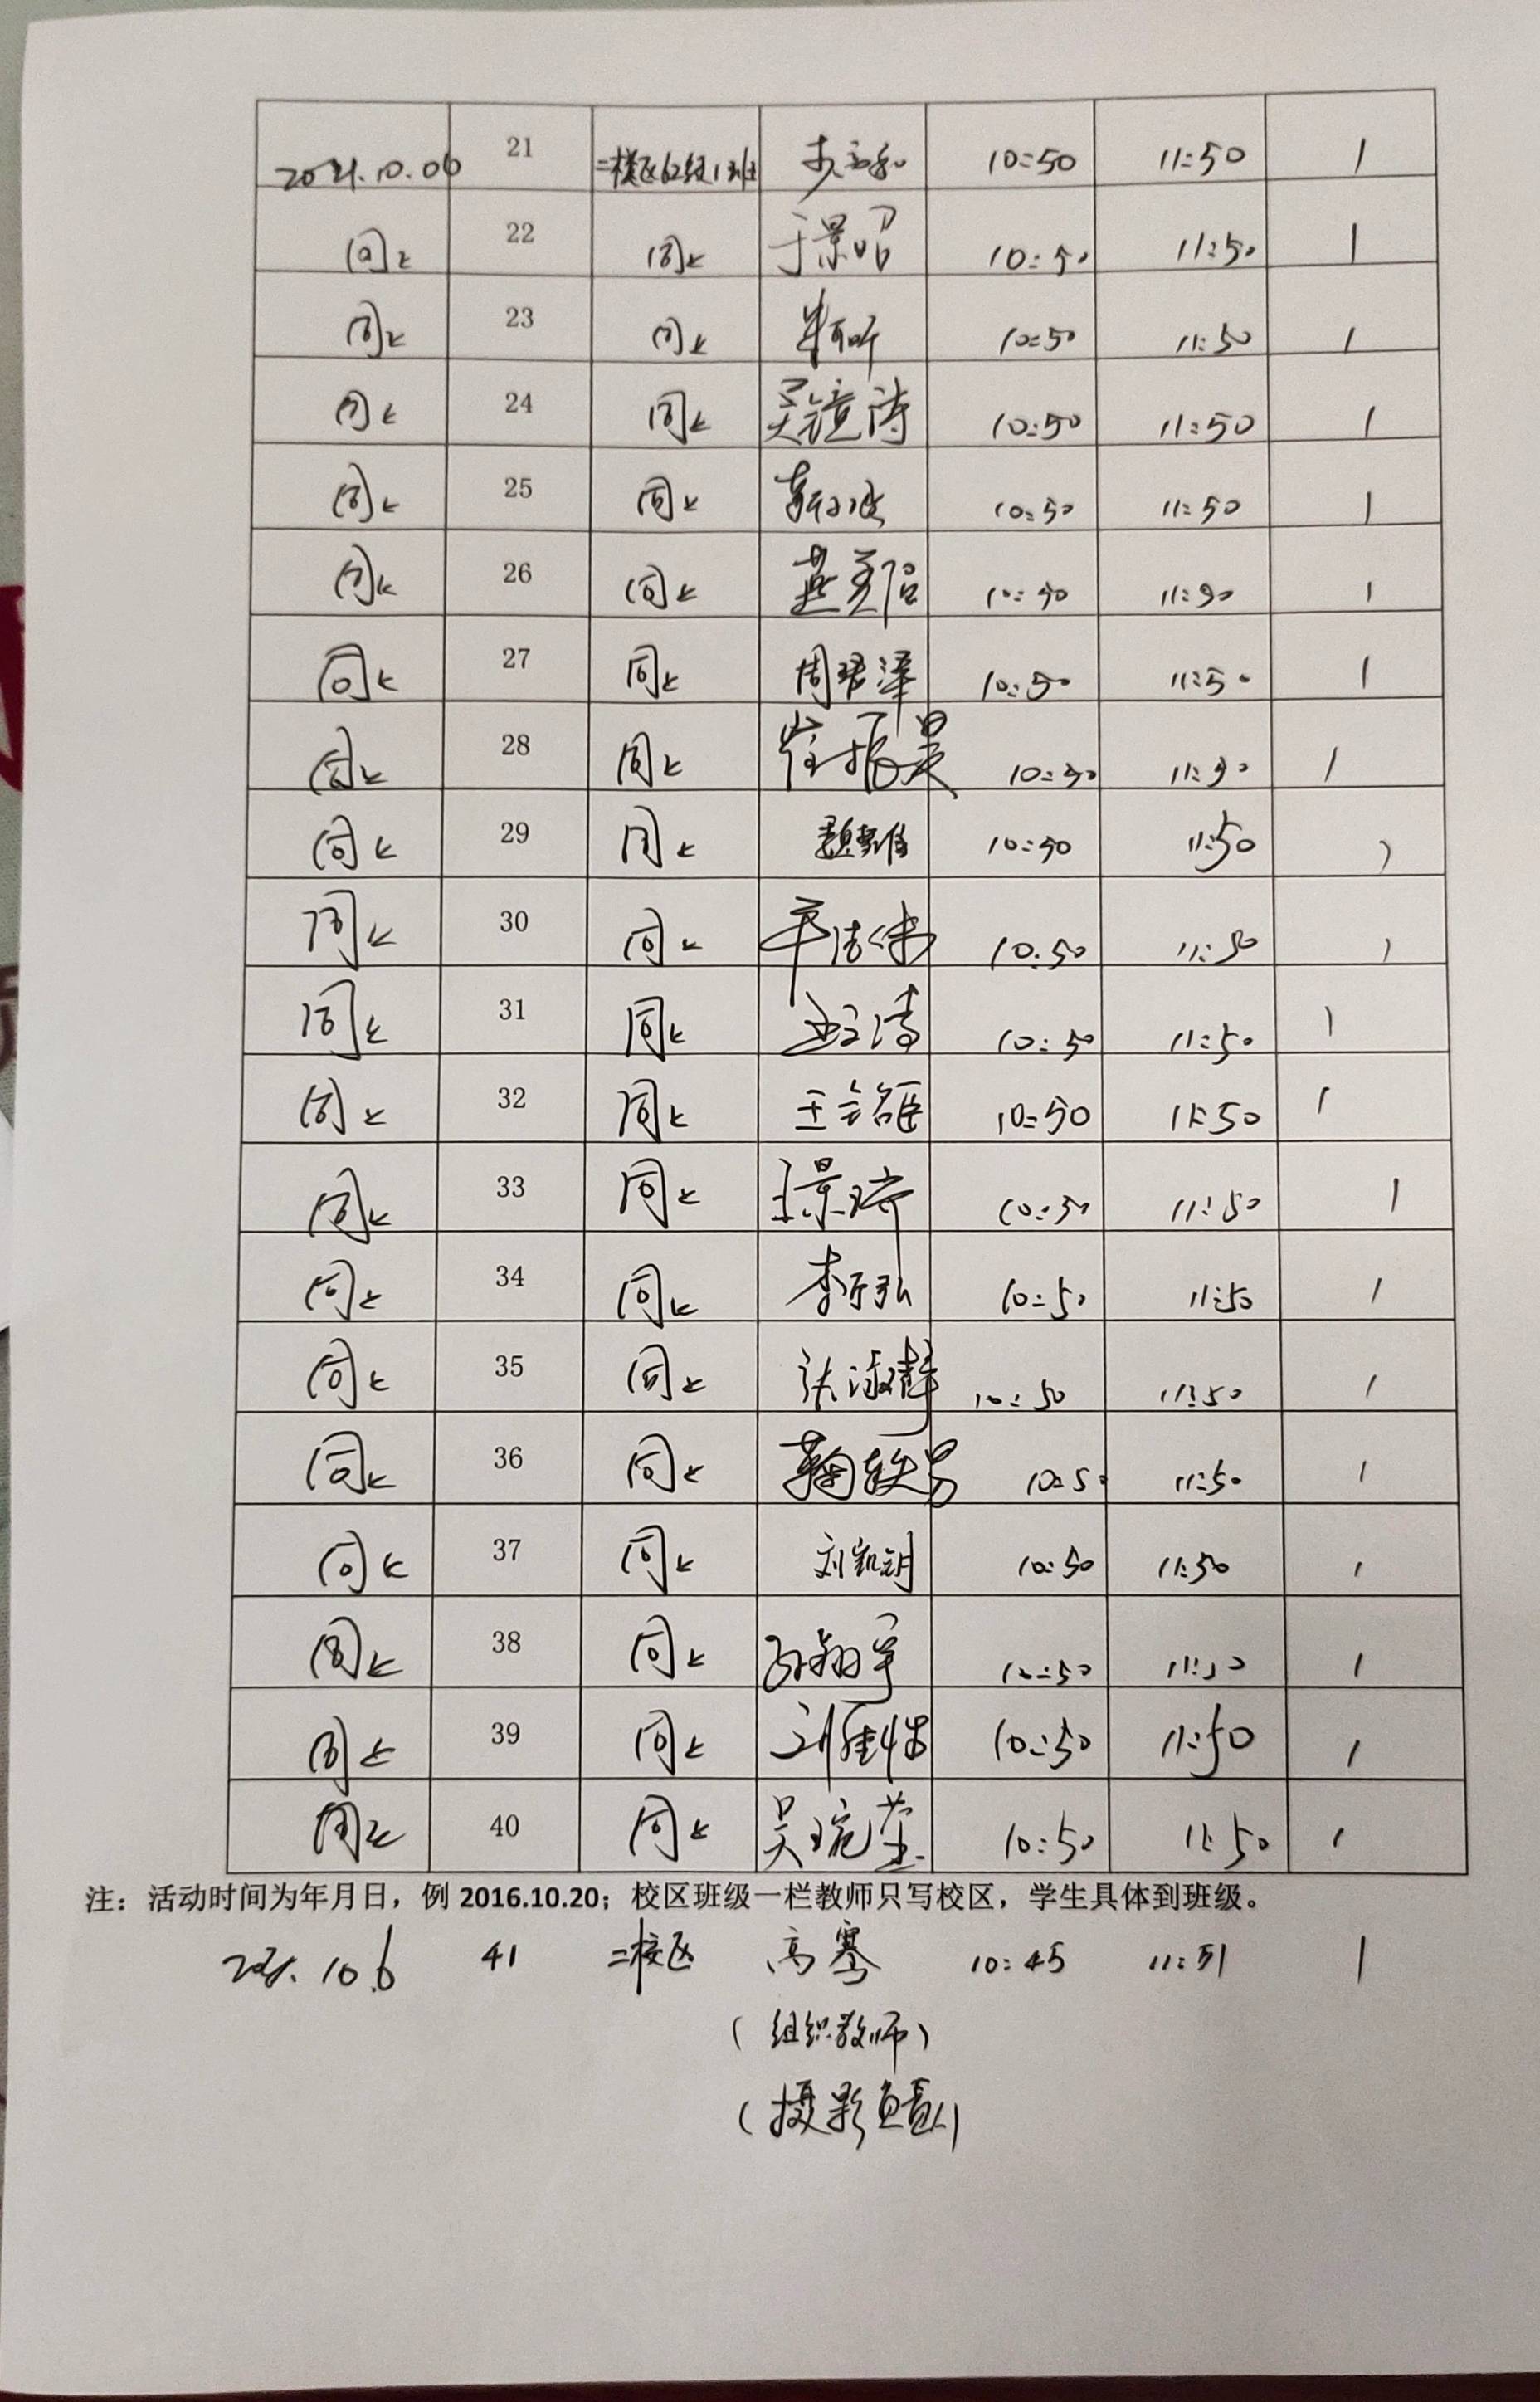 2021.10.06 21 二校区62级1班 10:50 11:50 1
同上 22 同上 于景昭 10:50 11:50 1
同上 23 同上 10:50 11:50 1
同上 24 同上 吴镜涛 10:50 11:50 1
同上 25 同上 10:50 11:50 1
同上 26 同上 10:50 11:50 1
同上 27 同上 周珺泽 10:50 11:50 1
同上 28 同上 崔振昊 10:50 11:50 1
同上 29 同上 10:50 11:50 1
同上 30 同上 10:50 11:50 1
同上 31 同上 10:50 11:50 1
同上 32 同上 10:50 11:50 1
同上 33 同上 王景琦 10:50 11:50 1
同上 34 同上 10:50 11:50 1
同上 35 同上 10:50 11:50 1
同上 36 同上 鞠轶易 10:50 11:50 1
同上 37 同上 刘凯玥 10:50 11:50 1
同上 38 同上 孙翔宇 10:50 11:50 1
同上 39 同上 10:50 11:50 1
同上 40 同上 吴琬莹 10:50 11:50 1
注：活动时间为年月日，例 2016.10.20；校区班级一栏教师只写校区，学生具体到班级。
2021.10.6 41 二校区 高骞 10:45 11:51 1
（组织教师）
（摄影